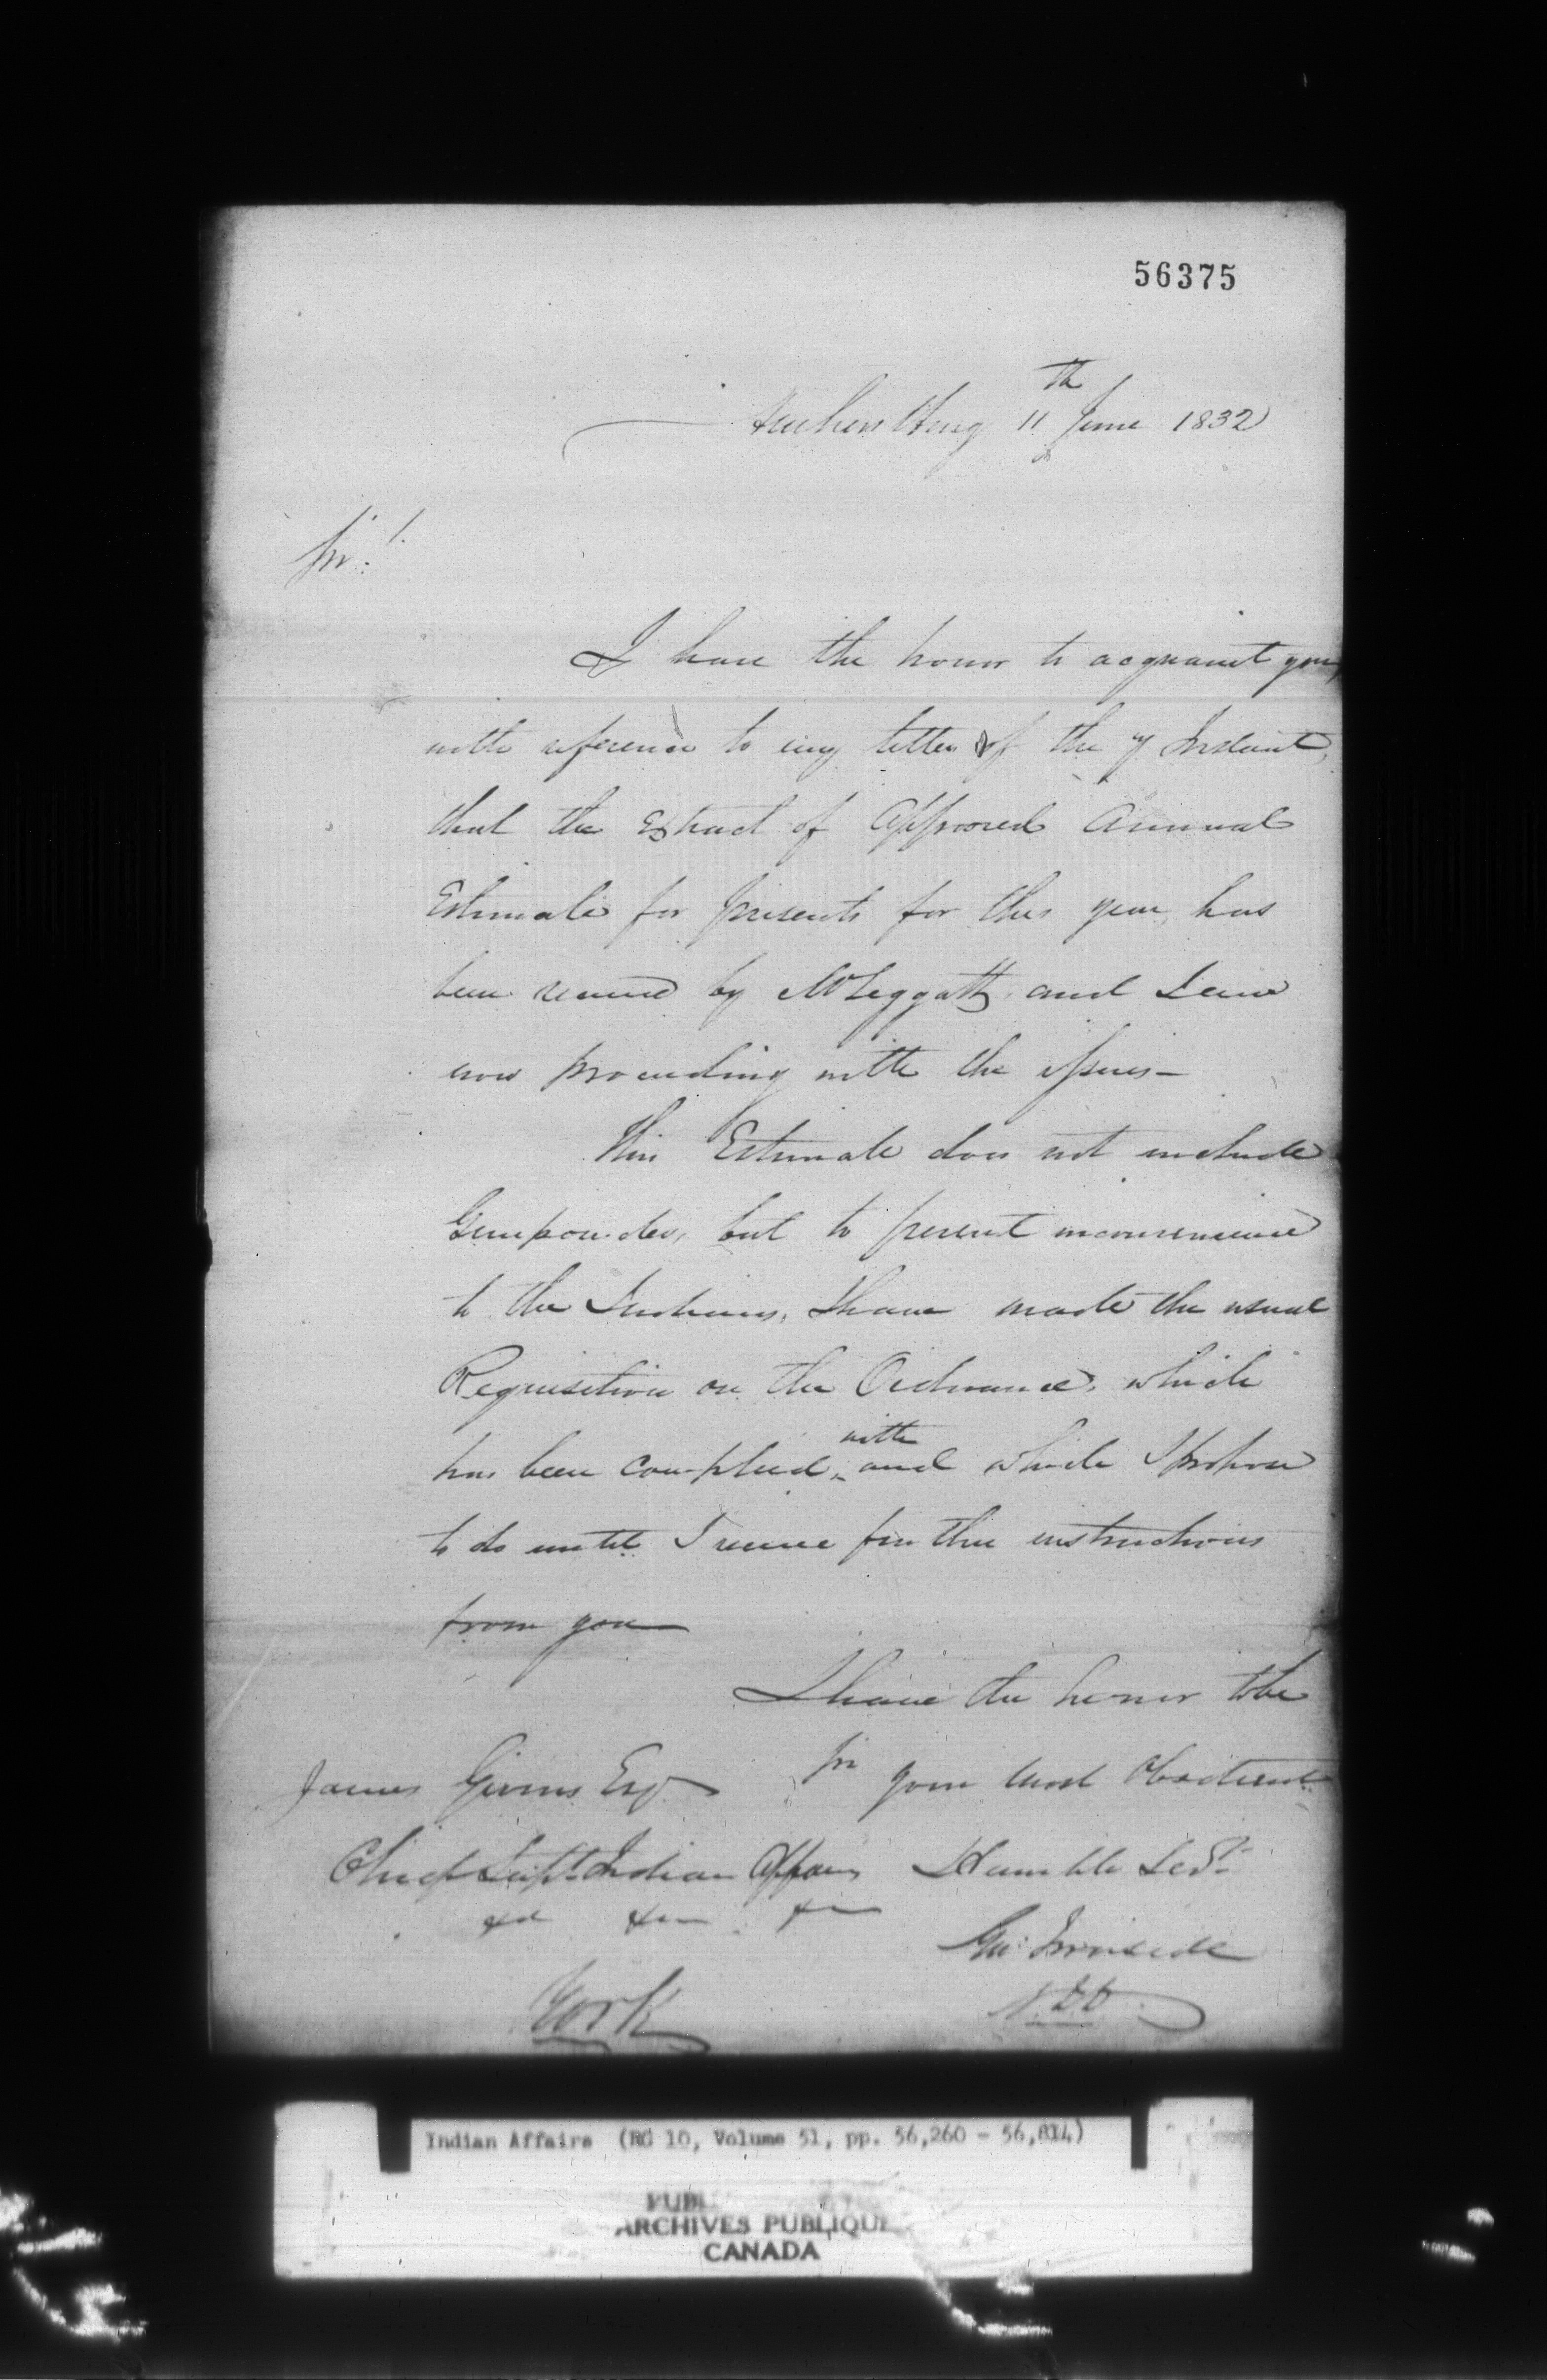 56375
Amherstburg 11th June 1832
Sir!
I have the honor to acquaint you,
with reference to my letter of the 7 Instant,
that the Extract of Approved Annual
Estimate for presents for this year, has
been received by Mr Leggatt, and I am
now proceeding with the issues—
This Estimate does not include
Gunpowder, but to prevent inconvenience
to the Indians, I have made the usual
Requisition on the Ordnance, which
has been complied with and which I propose
to do until I receive further instructions
from you
I have the honor to be
Sir your most obedient
Humble Servt
Geo: Ironside
James Givins Esqr
Chief Supt Indian Affairs
York
Indian Affairs (RG 10, Volume 51, pp. 56,260 - 56,814)
ARCHIVES PUBLIQUE
CANADA